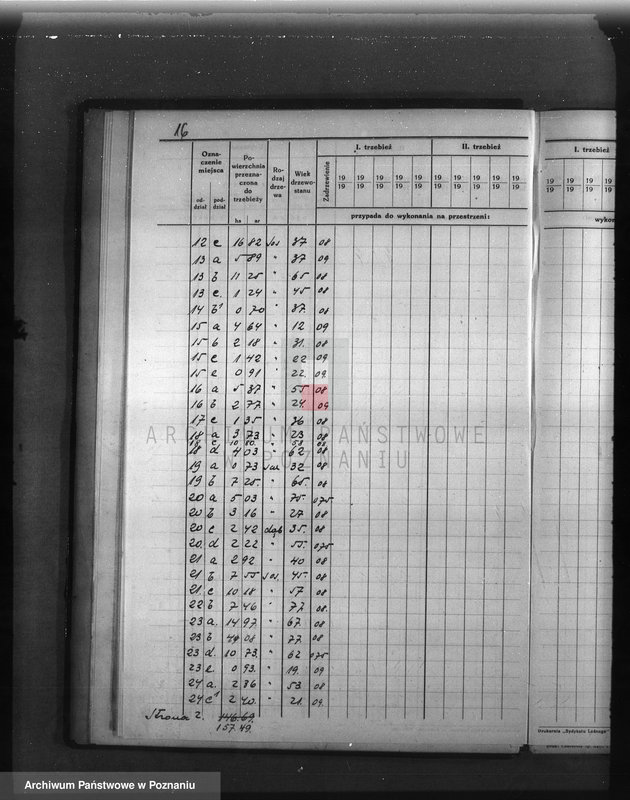 16
Ozna-
czenie
miejsca
od-
dział
pod-
dział
Po-
wierzchnia
przezna-
czona
do
trzebieży
ha ar
Ro-
dzaj
drze-
wa
Wiek
drzewo-
stanu
Zadrzewienie
I. trzebież
II. trzebież
19 19 19 19 19 19 19 19 19 19
19 19 19 19 19 19 19 19 19 19
przypada do wykonania na przestrzeni:
I. trzebież
19 19 19 19
19 19 19 19
wykon
12 c 16 82 sos 37 08
13 a 5 89 " 37 09
13 b 11 25 " 65 08
13 c. 1 24 " 45 08
14 b1 0 70 " 37. 08
15 a 4 64 " 12 09
15 b 2 18 " 31. 08
15 c 1 42 " 22 09
15 e 0 91 " 22. 09.
16 a 5 37 " 55 08
16 b 2 77. " 24. 09
17 c 1 35 " 36 08
18 a 3 73 " 23 08
18 c 10 80. " 58 08
18 d 4 03 " 62 08
19 a 0 73 sos 32 08
19 b 7 25 " 65. 08
20 a 5 03 " 75. 075
20 b 3 16 " 27 08
20 c 2 42 dąb 35. 08
20. d 2 22 " 55. 075
21 a 2 92 " 40 08
21 b 7 55 sos 45. 08
21 c 10 18 " 57 08
22 b 7 46 " 77. 08
23 a. 14 97. " 67. 08
23 b 4 08 " 77. 08
23 d. 10 73. " 62 075
23 e 0 93. " 19. 09
24 a. 2 86 " 53. 08
24 c1 2 40. " 21. 09.
Strona 2. 146.69.
157.49.
Drukarnia „Spółdzielni Leśnego"
ARCHIWUM PAŃSTWOWE
W POZNANIU
Archiwum Państwowe w Poznaniu